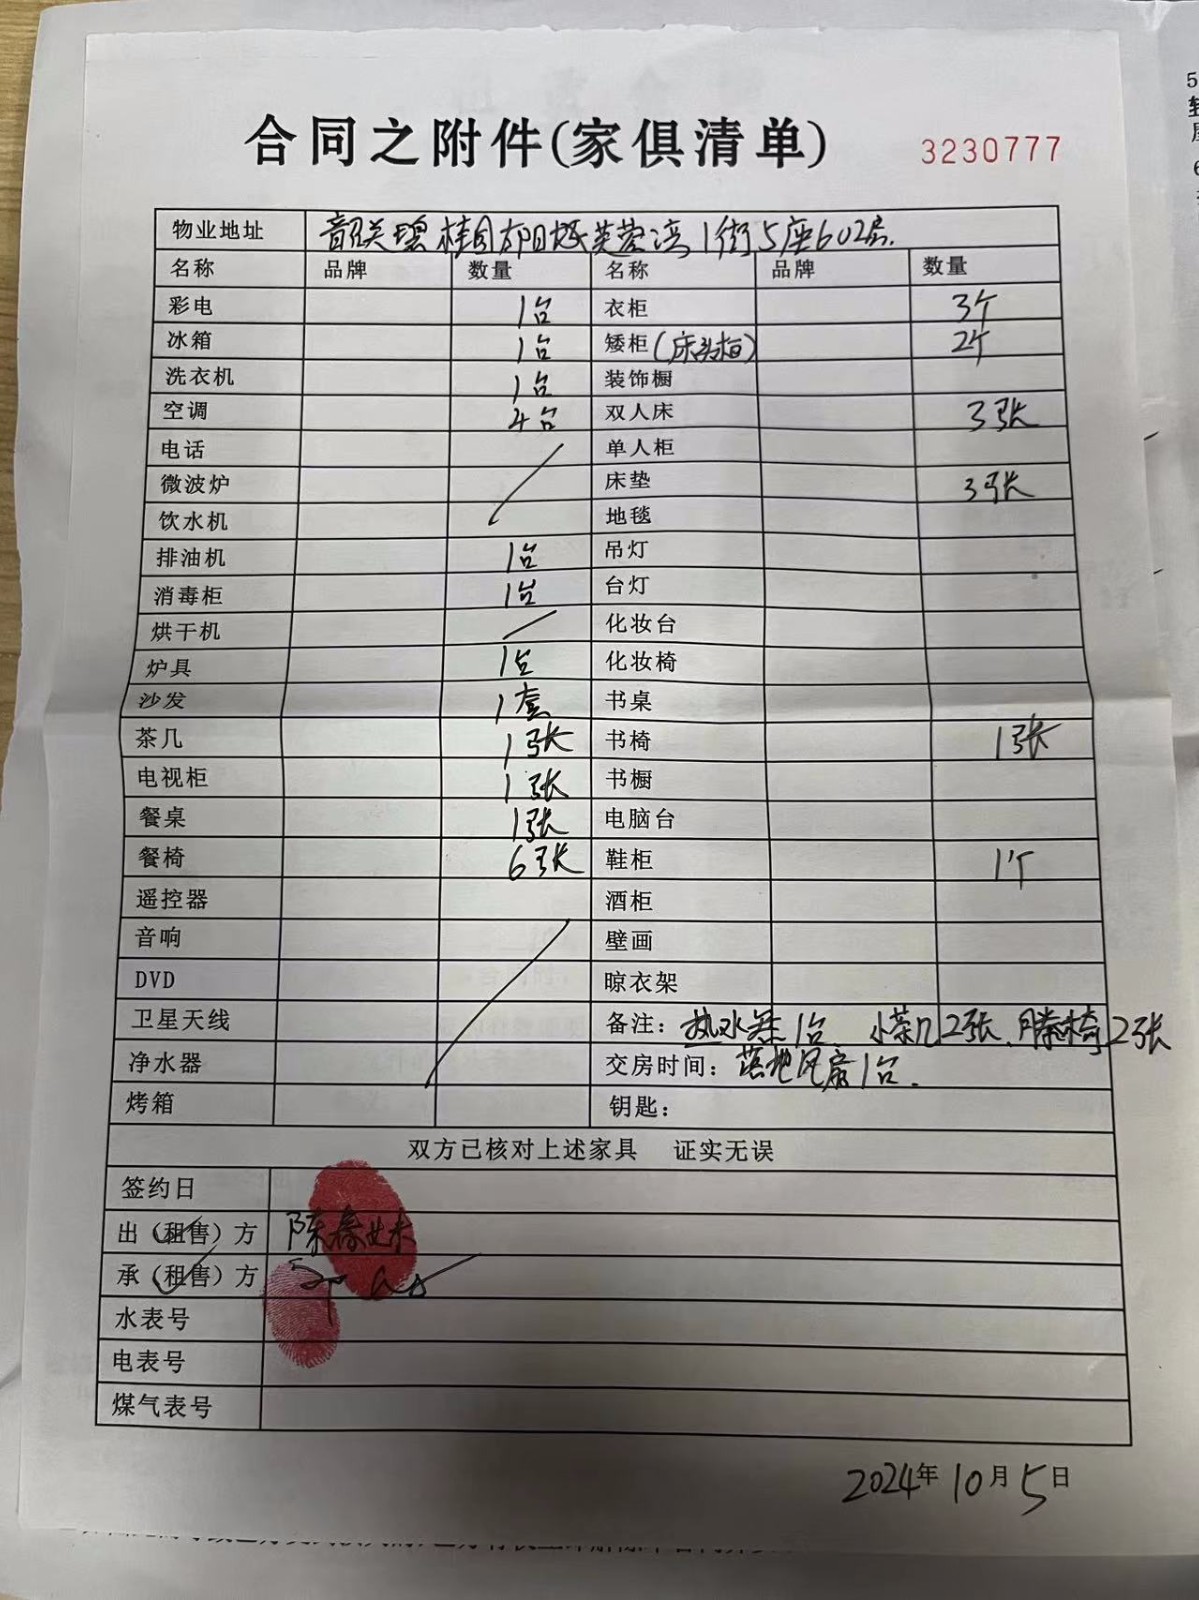 合同之附件(家俱清单) 3230777
物业地址 韶关碧桂园太阳城芙蓉湾1街5座602房.
名称 品牌 数量 名称 品牌 数量
彩电 1台 衣柜 3个
冰箱 1台 矮柜(床头柜) 2个
洗衣机 1台 装饰橱
空调 4台 双人床 3张
电话 单人柜
微波炉 床垫 3张
饮水机 地毯
排油机 1台 吊灯
消毒柜 1台 台灯
烘干机 化妆台
炉具 1台 化妆椅
沙发 1套 书桌
茶几 1张 书椅 1张
电视柜 1张 书橱
餐桌 1张 电脑台
餐椅 6张 鞋柜 1个
遥控器 酒柜
音响 壁画
DVD 晾衣架
卫星天线 备注: 热水器1台、小茶几2张、藤椅2张
净水器 交房时间: 落地风扇1台.
烤箱 钥匙:
双方已核对上述家具 证实无误
签约日
出(租售)方 陈春
承(租售)方
水表号
电表号
煤气表号
2024年10月5日